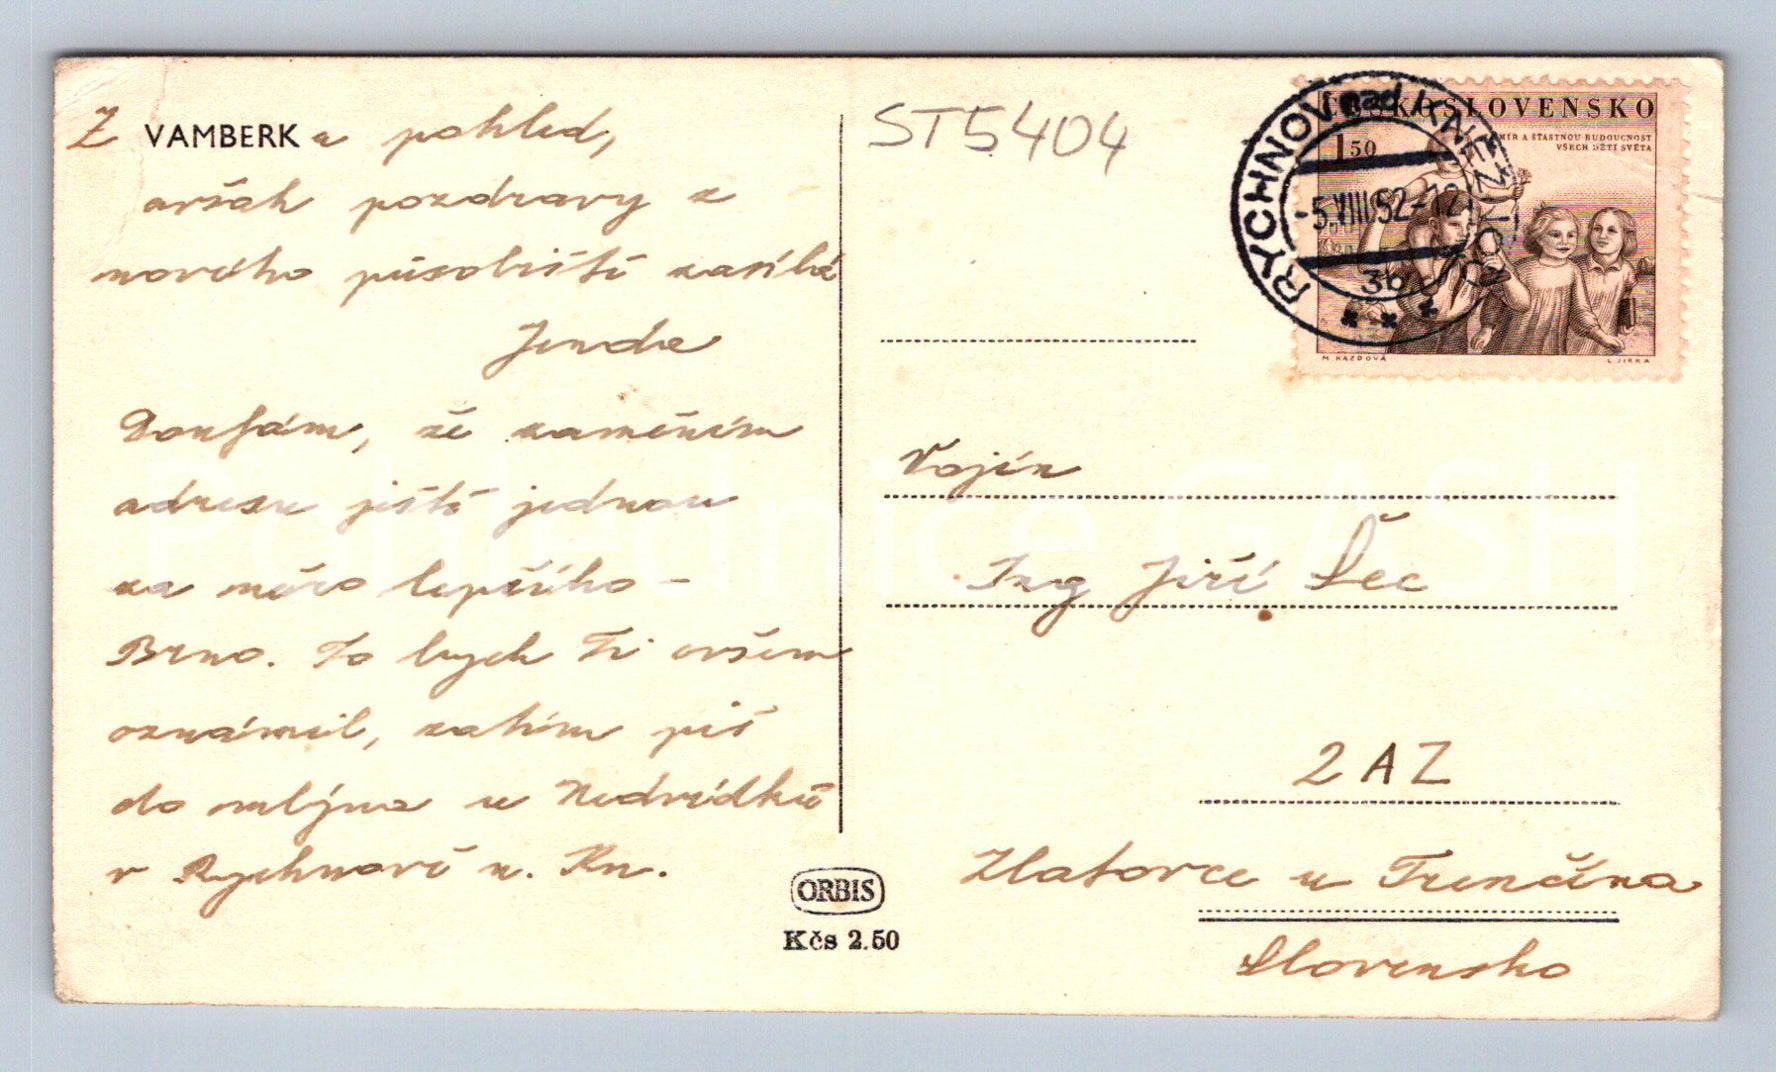 Z VAMBERKu pohled,
avšak pozdravy z
nového působiště zasílá
Jenda
Doufám, že zaměním
adresu ještě jednou
za něco lepšího -
Brno. To bych Ti ovšem
oznámil, zatím piš
do mlýna u Nedvídků
v Rychnově n. Kn.
ORBIS
Kčs 2.50
ST5404
RYCHNOV nad KNĚŽNOU
-5.VIII.52-12
3b
ČESKOSLOVENSKO
MÍR A ŠŤASTNOU BUDOUCNOST
VŠECH DĚTÍ SVĚTA
1 50
L. JIRKA
Vojín
Ing Jiří Šec
2 A Z
Zlatovce u Trenčína
Slovensko
Pohlednice GASH